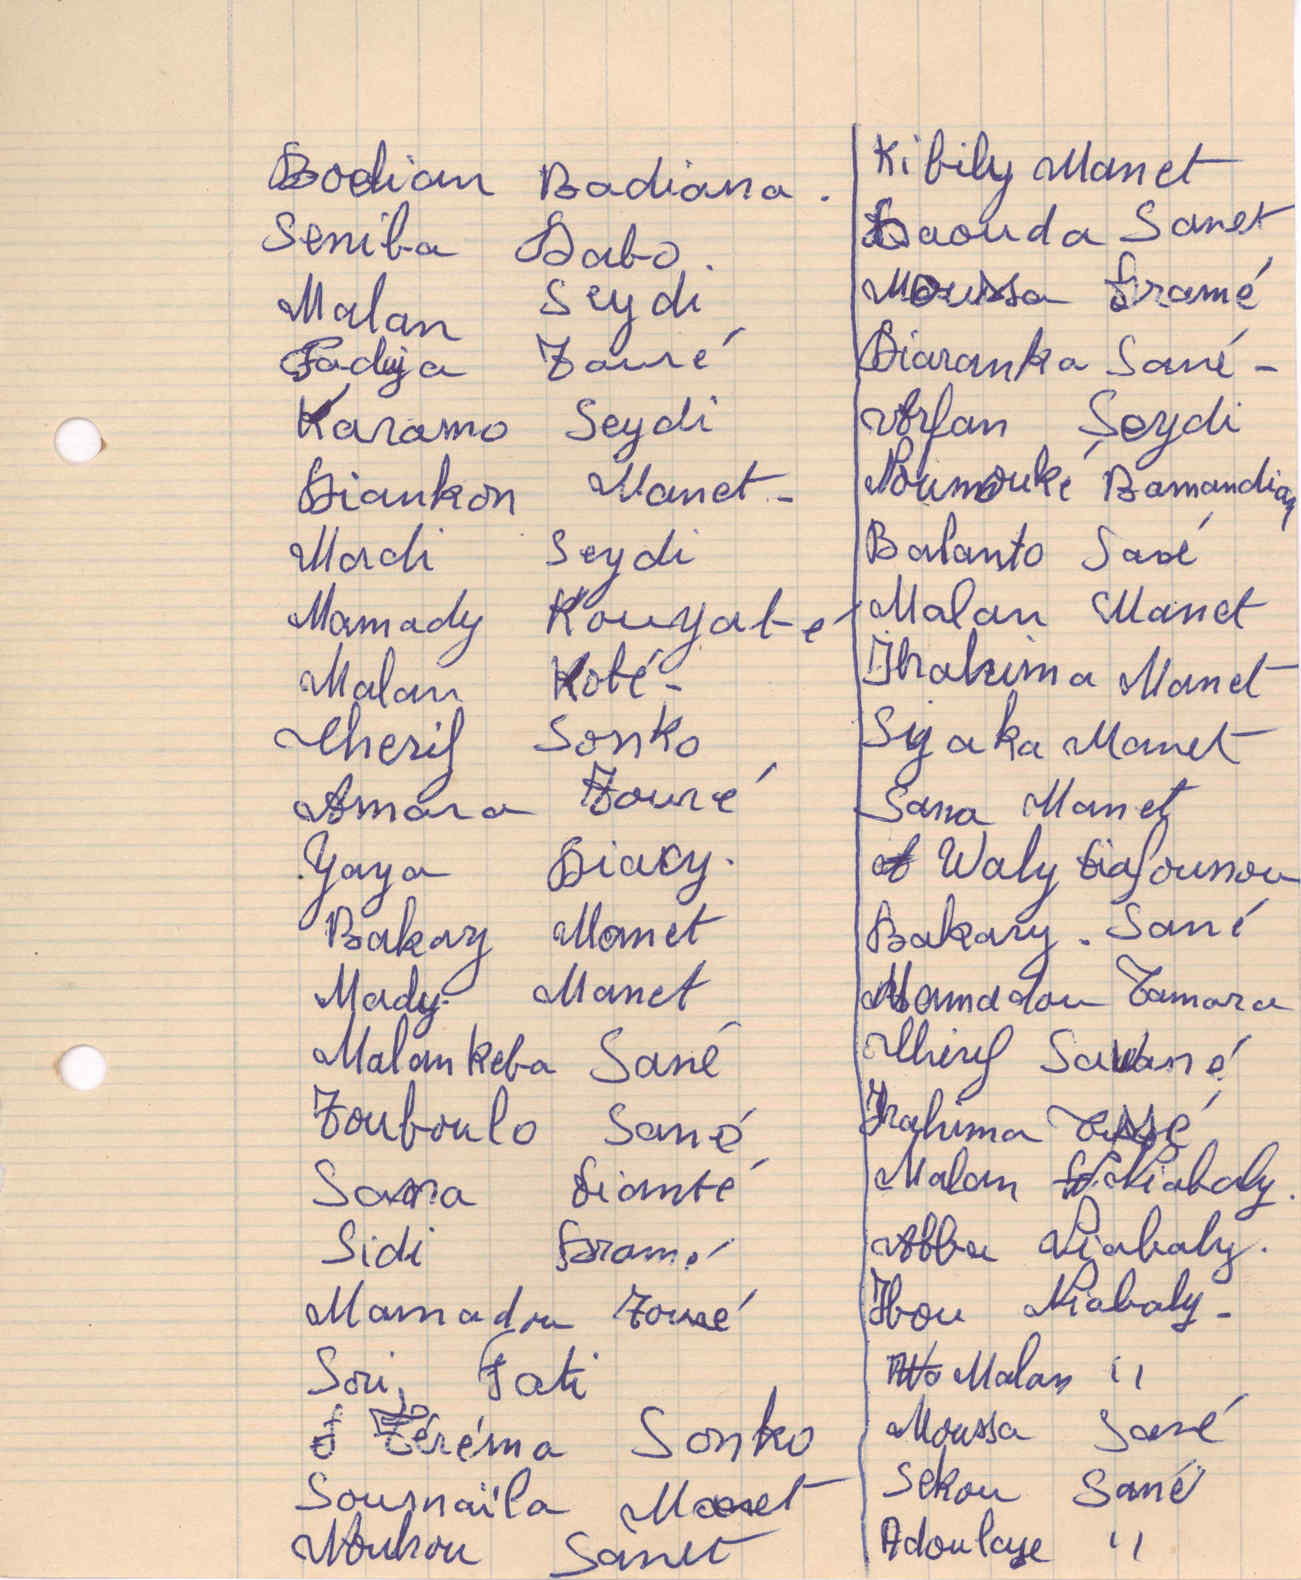 Bodian Badiana.
Seniba Dabo.
Malan Seydi
Fadija Touré
Karamo Seydi
Diankon Manet -
Mardi Seydi
Mamady Kouyaté
Malan Kobé -
Cherif Sonko
Amara Touré
Yaya Diacy.
Bakary Manet
Mady Manet
Malankeba Sané
Touboulo Sané
Sana Dianté
Sidi Dramé
Mamadou Touré
Sori Fati
Téréma Sonko
Soumaïla Manet
Nouhou Sanet
Kibily Manet
Daouda Sanet
Moussa Dramé
Diaranka Sané -
Arfan Seydi
Noumouké Bamandian
Balanto Sané
Malan Manet
Ibrahima Manet
Siyaka Manet
Sana Manet
Waly Diafounou
Bakary. Sané
Mamadou Tamara
Cherif Savané
Irahima
Malan Niabaly.
Abba Niabaly.
Ibou Niabaly -
Malan "
Moussa Sané
Sekou Sané
Adoulaye "